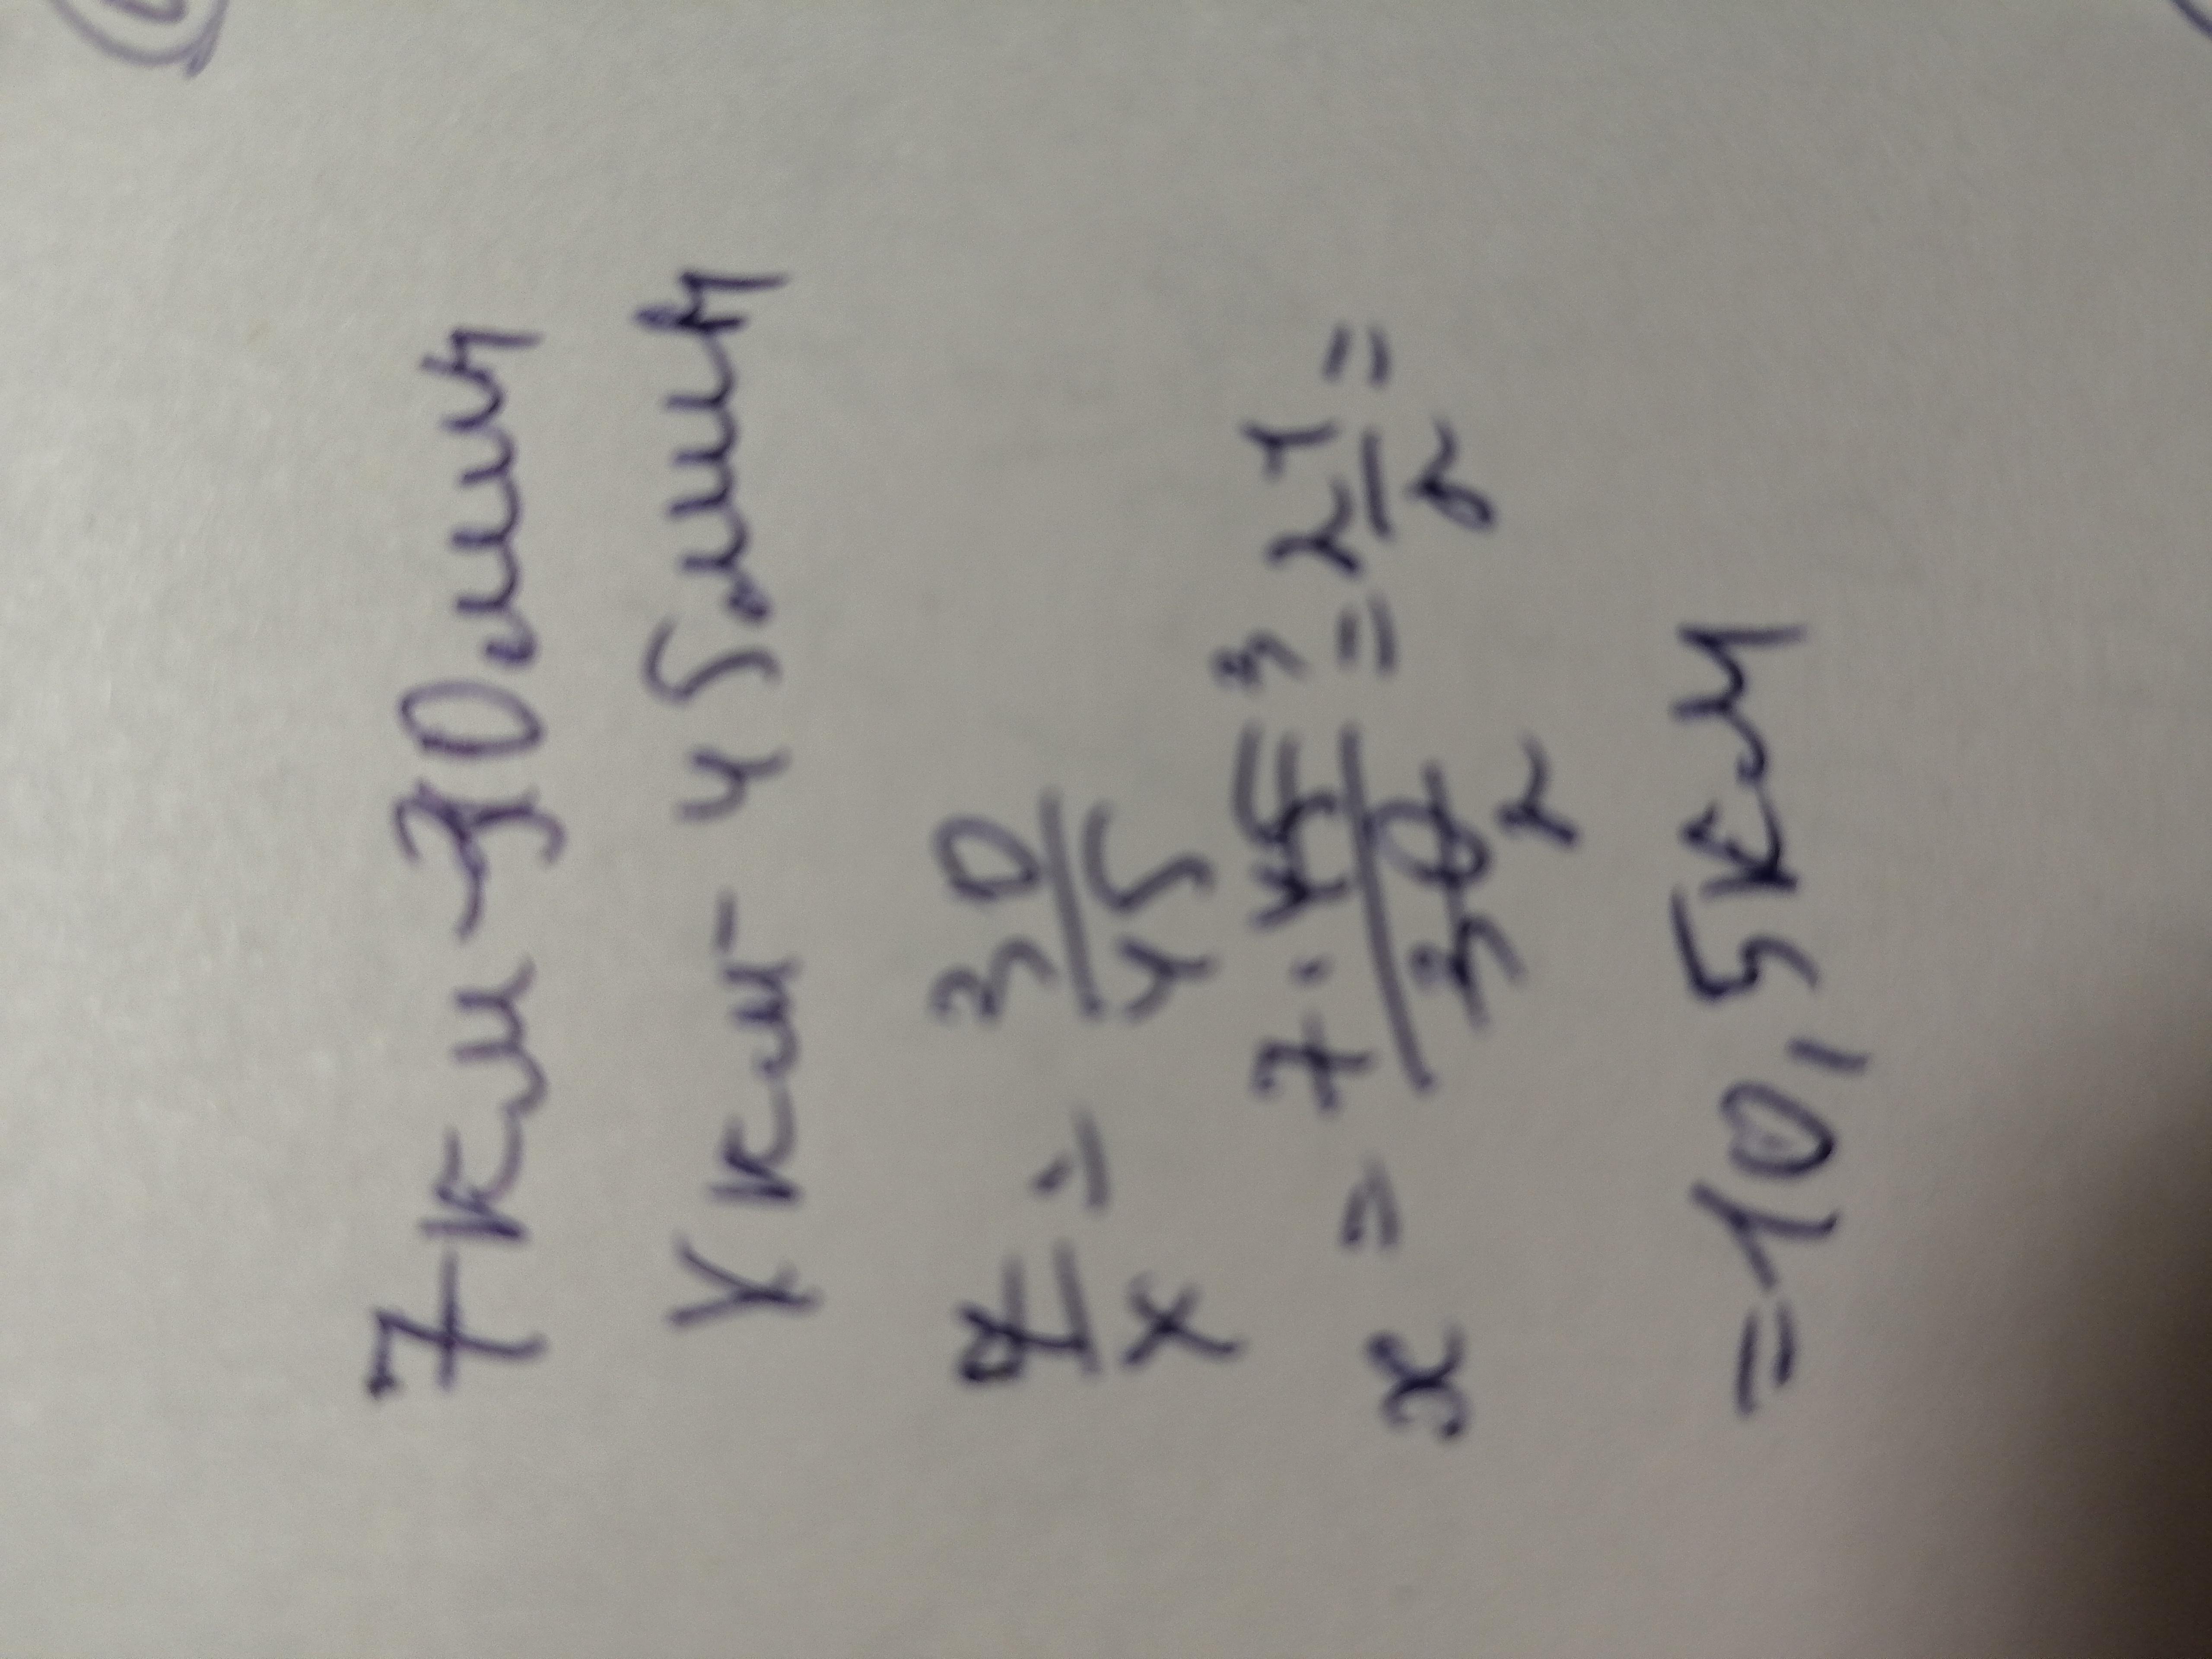 7 км - 30 мин
х км - 45 мин
7/х = 30/45
x = 7 · 45 3 / 30 2 = 21/2 =
= 10,5 км